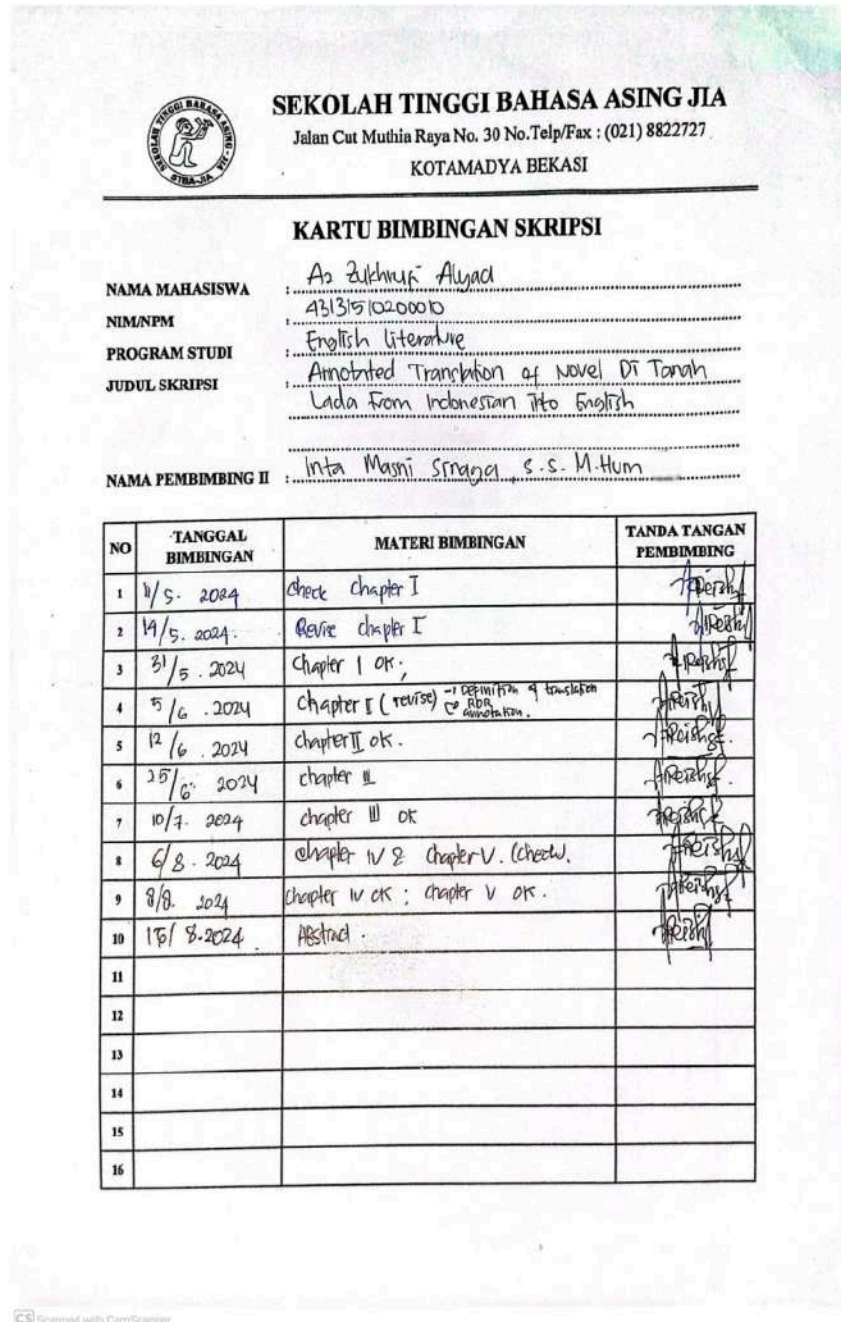 SEKOLAH TINGGI BAHASA ASING - JIA
STBA-JIA
SEKOLAH TINGGI BAHASA ASING JIA
Jalan Cut Muthia Raya No. 30 No.Telp/Fax : (021) 8822727
KOTAMADYA BEKASI
KARTU BIMBINGAN SKRIPSI
NAMA MAHASISWA : Az Zukhruf Alyad
NIM/NPM : 43131510200010
PROGRAM STUDI : English Literature
JUDUL SKRIPSI : Annotated Translation of Novel Di Tanah
Lada From Indonesian Into English
NAMA PEMBIMBING II : Inta Masni Sinaga, S.S. M.Hum
NO TANGGAL BIMBINGAN MATERI BIMBINGAN TANDA TANGAN PEMBIMBING
1 /5. 2024 check chapter I
2 14/5. 2024. Revise chapter I
3 31/5. 2024 Chapter I OK;
4 5/6. 2024 Chapter (revise) Definition of translation annotation.
5 12/6. 2024 chapter II ok.
6 25/6. 2024 chapter III
7 10/7. 2024 chapter III OK
8 6/8. 2024 chapter IV & chapter V. (check).
9 8/8. 2024 Chapter IV OK ; chapter V OK.
10 15/8.2024 Abstract.
11
12
13
14
15
16
CS Scanned with CamScanner